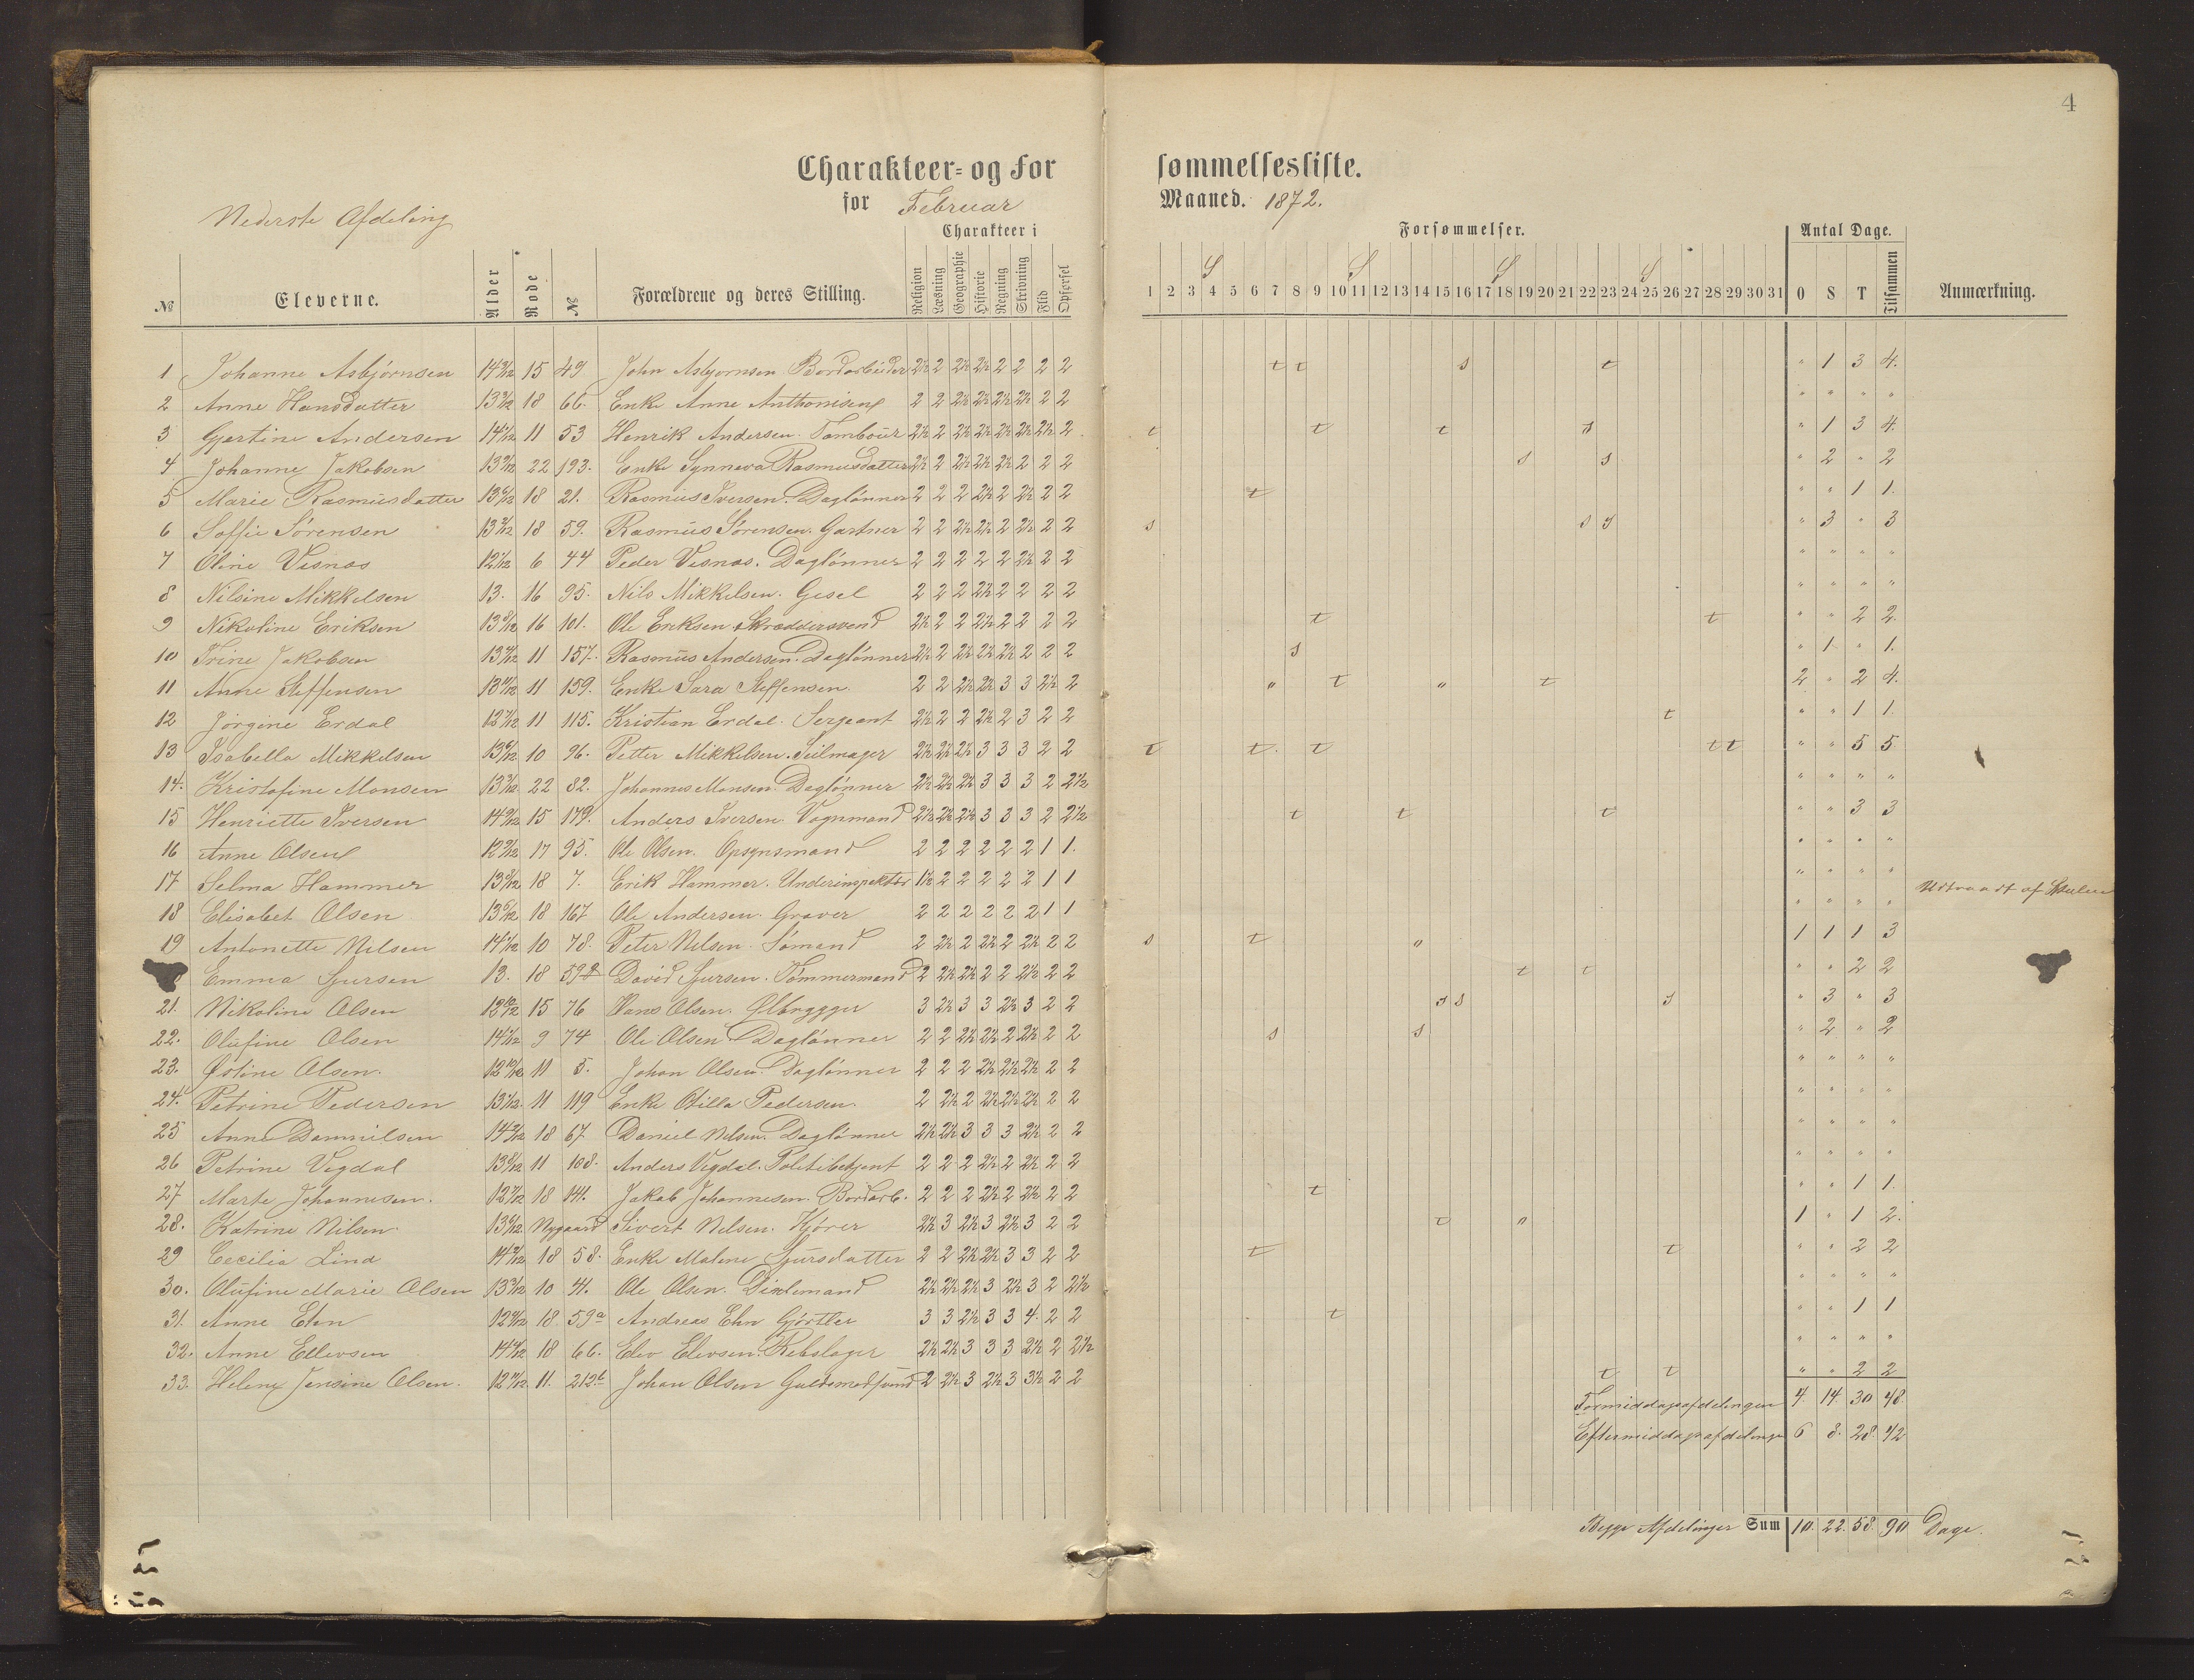 4
Charakteer- og Forsømmelsesliste.
for Februar Maaned. 1872.
Nederste Afdeling
Charakteer i Forsømmelser. Antal Dage.
S S S S
№ Eleverne. Alder Rode № Forældrene og deres Stilling. Religion Læsning Geographie Historie Regning Skrivning Flid Opførsel 1 2 3 4 5 6 7 8 9 10 11 12 13 14 15 16 17 18 19 20 21 22 23 24 25 26 27 28 29 30 31 0 S T Tilsammen Anmærkning.
1 Johanne Asbjørnsen 15 49 John Asbjørnsen Bordarbeider 2½ 2 2½ 2½ 2 2 2 2 t t s t " 1 3 4.
2 Anne Hansdatter 18 66. Enke Anne Anthonisen 2 2 2½ 2½ 2½ 2½ 2 2 " " " "
3 Gjertine Andersen 11 53 Henrik Andersen. Tambour 2½ 2 2½ 2½ 2½ 2½ 2½ 2 t t t s " 1 3 4.
4 Johanne Jakobsen 22 193. Enke Synneva Rasmusdatter 2½ 2 2½ 2½ 2½ 2 2 2 s s " 2 " 2
5 Marie Rasmusdatter 18 21. Rasmus Iversen. Daglønner 2 2 2 2½ 2 2½ 2 2 t " " 1 1.
6 Soffie Sørensen 18 59. Rasmus Sørensen. Gartner 2 2 2½ 2½ 2 2½ 2 2 s s s " 3 " 3
7 Oline Visnes 6 44 Peder Visnes. Daglønner 2 2 2 2 2 2½ 2 2 " " " "
8 Nilsine Mikkelsen 13. 16 95. Nils Mikkelsen. Gesel 2 2 2 2½ 2 2 2 2 " " " "
9 Nikoline Eriksen 16 101. Ole Eriksen Skræddersvend 2½ 2 2 2½ 2 2 2 2 t t " " 2 2.
10 Trine Jakobsen 11 157. Rasmus Andersen. Daglønner 2½ 2 2½ 2½ 2½ 2 2 2 s " 1 " 1.
11 Anne Steffensen 11 159. Enke Sara Steffensen. 2 2 2½ 2½ 3 3 2½ 2 " t " t 2 " 2 4.
12 Jørgine Erdal 11 115. Kristian Erdal. Sergeant 2½ 2 2 2½ 2 3 2 2 t " " 1 1.
13 Isabella Mikkelsen 10 96. Petter Mikkelsen. Seilmager 2½ 2½ 2½ 3 3 3 2 2 t t. t t t " " 5 5.
14. Kristofine Monsen 22 82. Johannes Monsen. Daglønner 2½ 2½ 2½ 3 3 3 2 2½ " " " "
15 Henriette Iversen 15 179. Anders Iversen Vognmand 2½ 2½ 2½ 3 3 3 2 2½ t t t " " 3 3
16 Anne Olsen 17 95. Ole Olsen. Opsynsmand 2 2 2 2 2 2 1 1. " " " "
17 Selma Hammer 18 7. Erik Hammer. Underinspektør 1½ 2 2 2 2 2 1 1 " " " " Udtraadt af Skolen
18 Elisabet Olsen 18 167 Ole Andersen. Graver 2 2 2 2 2 2 1 1 " " " "
19 Antonette Nilsen 10 78. Peter Nilsen. Sømand 2 2½ 2 2½ 2 2½ 2 2 s t " 1 1 1 3
Emma Sjursen 13. 18 David Sjursen. Tømmermand 2 2½ 2½ 2 2 2½ 2 2 t t " " 2 2
21. Nikoline Olsen 15 76 Hans Olsen. Ølbrygger 3 2½ 3 3 2½ 3 2 2 s s s " 3 " 3
22. Olufine Olsen 9 74 Ole Olsen Daglønner 2 2 2½ 2½ 2 2½ 2 2 s s " 2 " 2
23. Østine Olsen. 11 5. Johan Olsen. Daglønner 2 2 2 2½ 2½ 2½ 2 2 " " " "
24. Petrine Pedersen 11 119 Enke Otilla Pedersen. 2 2½ 2 2½ 2½ 2½ 2 2 " " " "
25 Anne Dannielsen 18 67. Daniel Nilsen. Daglønner 2½ 2½ 3 3 3 2½ 2 2 " " " "
26 Petrine Vegdal 11 108. Anders Vegdal. Politibetjent 2 2 2 2½ 2 2½ 2 2 " " " "
27 Marte Johannesen. 18 141. Jakob Johannesen. Bordarb. 2 2 2 2½ 2 2½ 2 2 t " " 1 1.
28. Katrine Nilsen Nygaard Sivert Nilsen. Kjører 2½ 3 2½ 3 2½ 3 2 2 t " 1 " 1 2.
29 Cecilia Lind 18 58. Enke Malene Sjursdatter 2 2 2½ 2½ 3 3 2 2 t t " " 2 2
30. Olufine Marie Olsen 10 41. Ole Olsen. 2½ 2½ 2½ 3 2½ 3 2 2½ " " " "
31. Anne Ehn 18. 59a Andreas Ehn Gjørtler 3 3 2½ 3 3 4. 2 2 t " " 1 1
32. Anne Ellevsen 18 66. Elev Elevsen. Rebslager 2½ 2½ 3 3 3 2½ 2 2½ " " " "
33. Helene Jensine Olsen. 11. 212b Johan Olsen Guldsmedsvend 2 2½ 3 2½ 3 3½ 2 2 t t " " 2 2
Formiddagsafdelingen 4. 14. 30 48.
Eftermiddagsafdelingen 6 8. 28. 42
Begge Afdelinger Sum 10. 22. 58. 90 Dage.